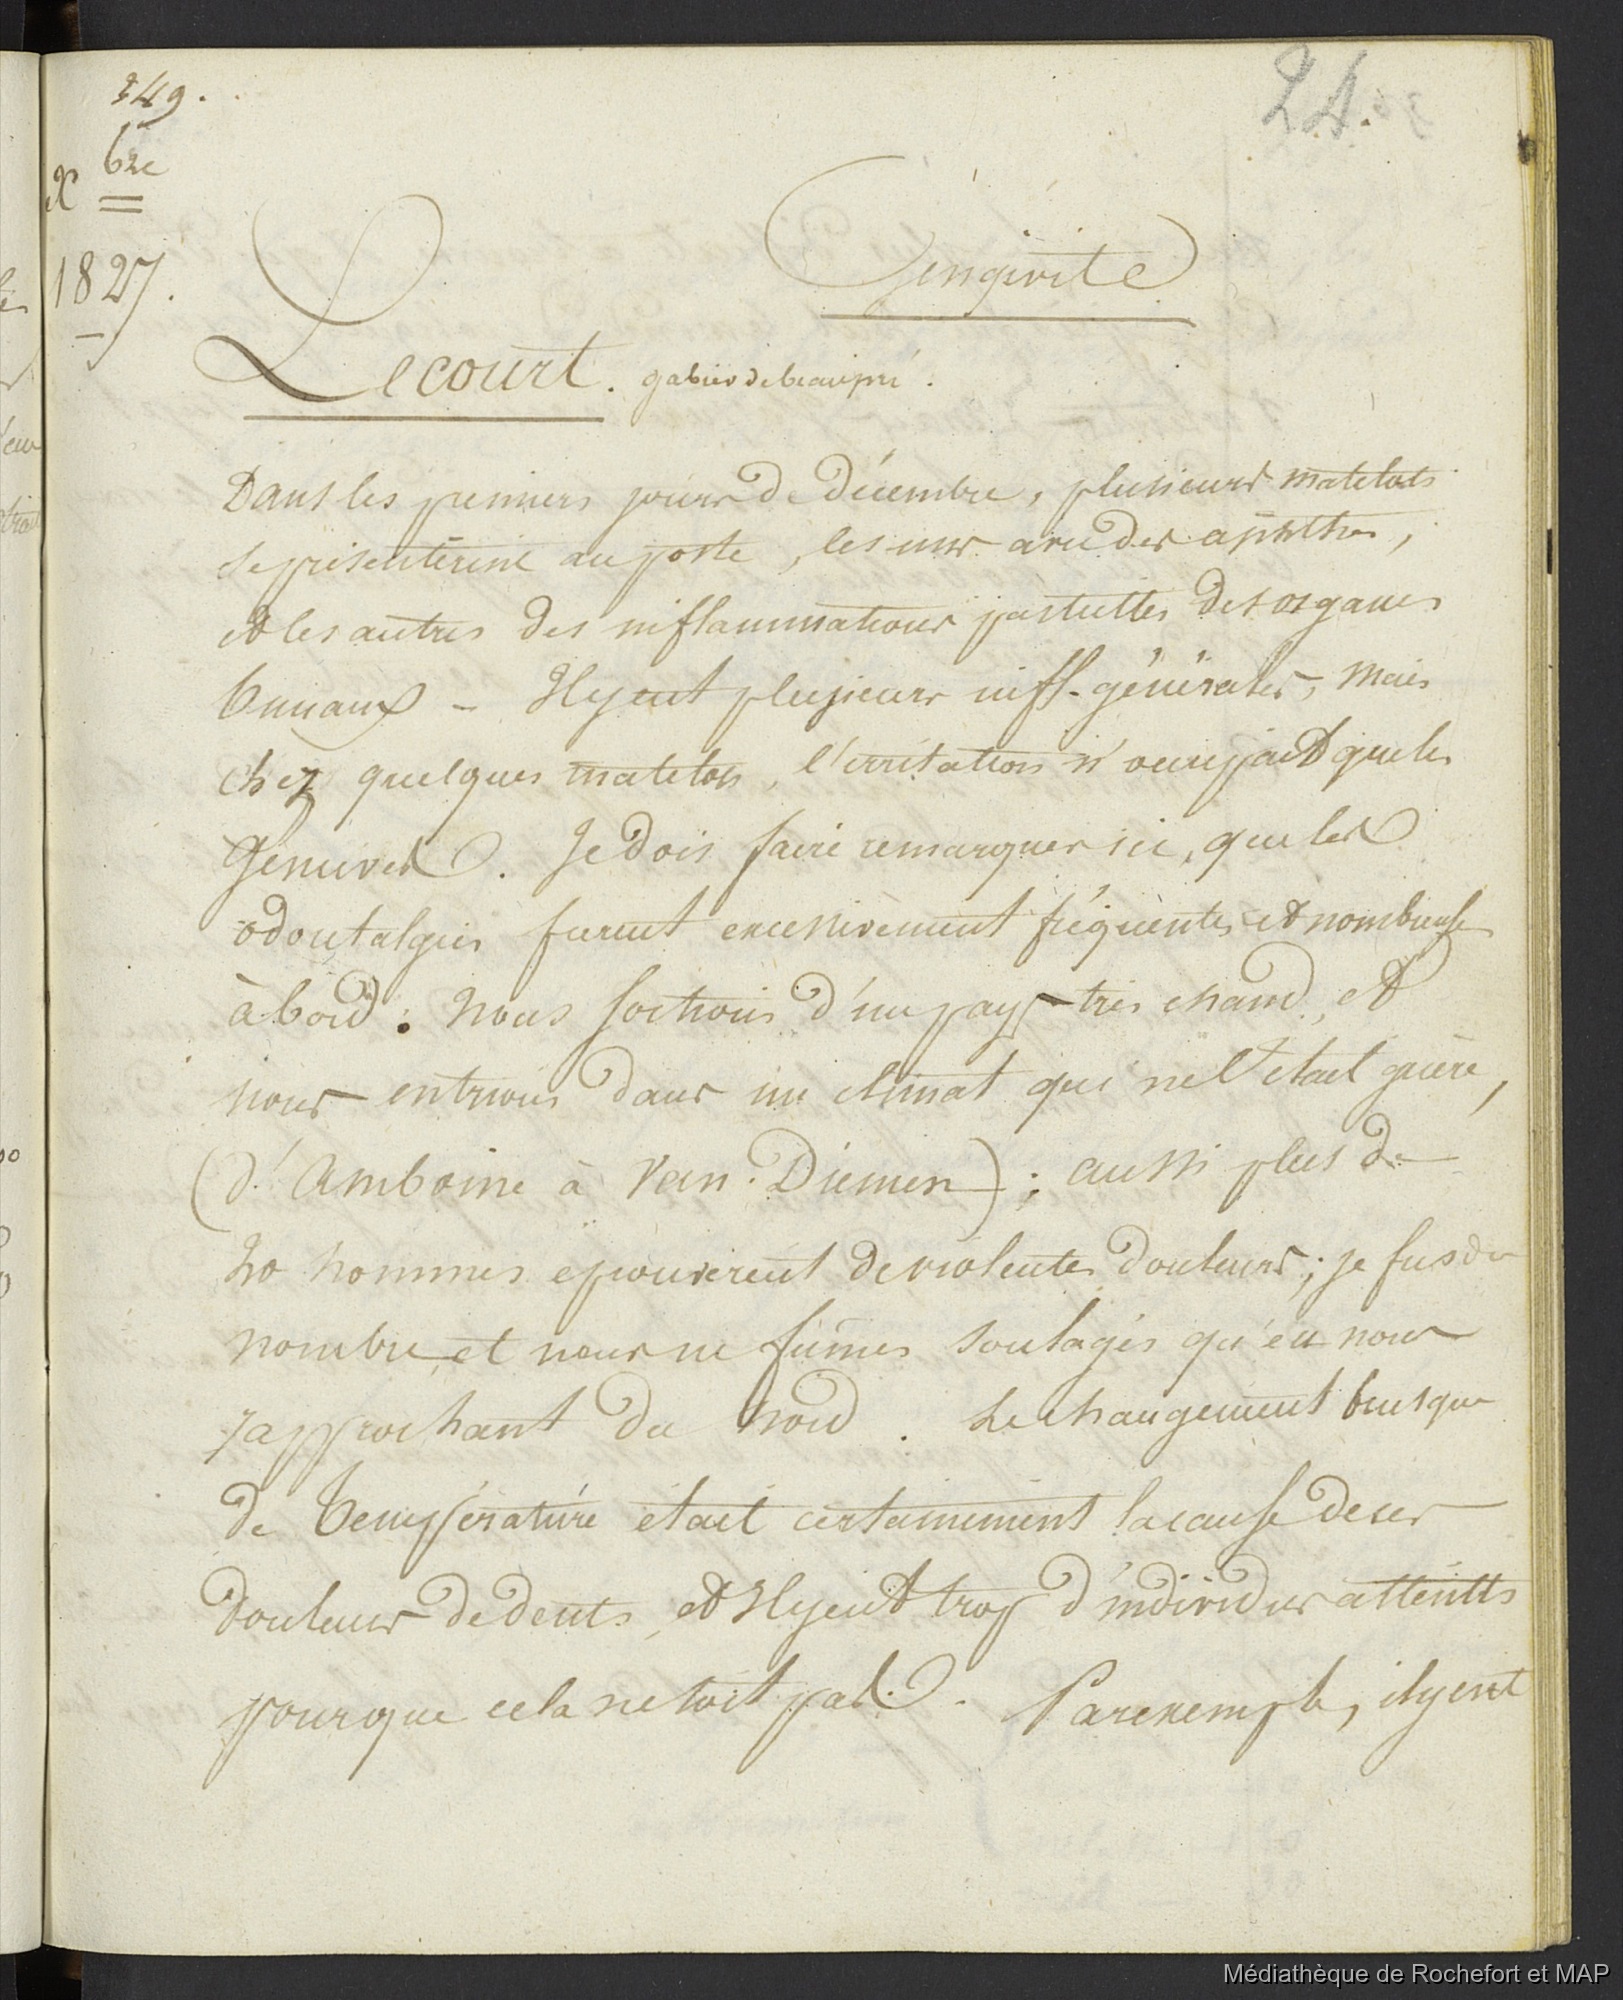 349.
24.
Xbre
1827.
Gengivite
Lecourt. gabier de beaupré.
Dans les premiers jours de décembre, plusieurs matelots
se présentèrent au poste, les uns avec des aphthes,
et les autres des inflammations partielles des organes
buccaux - Il y eut plusieurs infl. générales, mais
chez quelques matelots, l'irritation n'occupait que les
Gencives. Je dois faire remarquer ici, que les
odontalgies furent excessivement fréquentes et nombreuses
à bord. Nous sortions d'un pays très chaud, et
nous entrions dans un climat qui ne l'était guère,
(d'Amboine à Van-Diemen); aussi plus de
20 hommes eprouvèrent de violentes douleurs; je fus du
nombre, et nous ne fûmes soulagés qu'en nous
rapprochant du nord. Le changement brusque
de température était certainement la cause de ces
douleurs de dents, et il y eut trop d'individus atteints
pour que cela ne soit pas. Par exemple, il y eut
Médiathèque de Rochefort et MAP